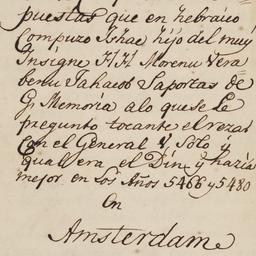 puestas que en hebraico
Compuzo Ishac hijo del muy
Insigne H.H. Morenu Vera
benu Jahacob Saportas de
G. Memoria a lo que se le
pregunto tocante el rezar
Con el General y Solo y
qual era el Din y hazia
mejor en Los Años 5466 y 5480
En
Amsterdam